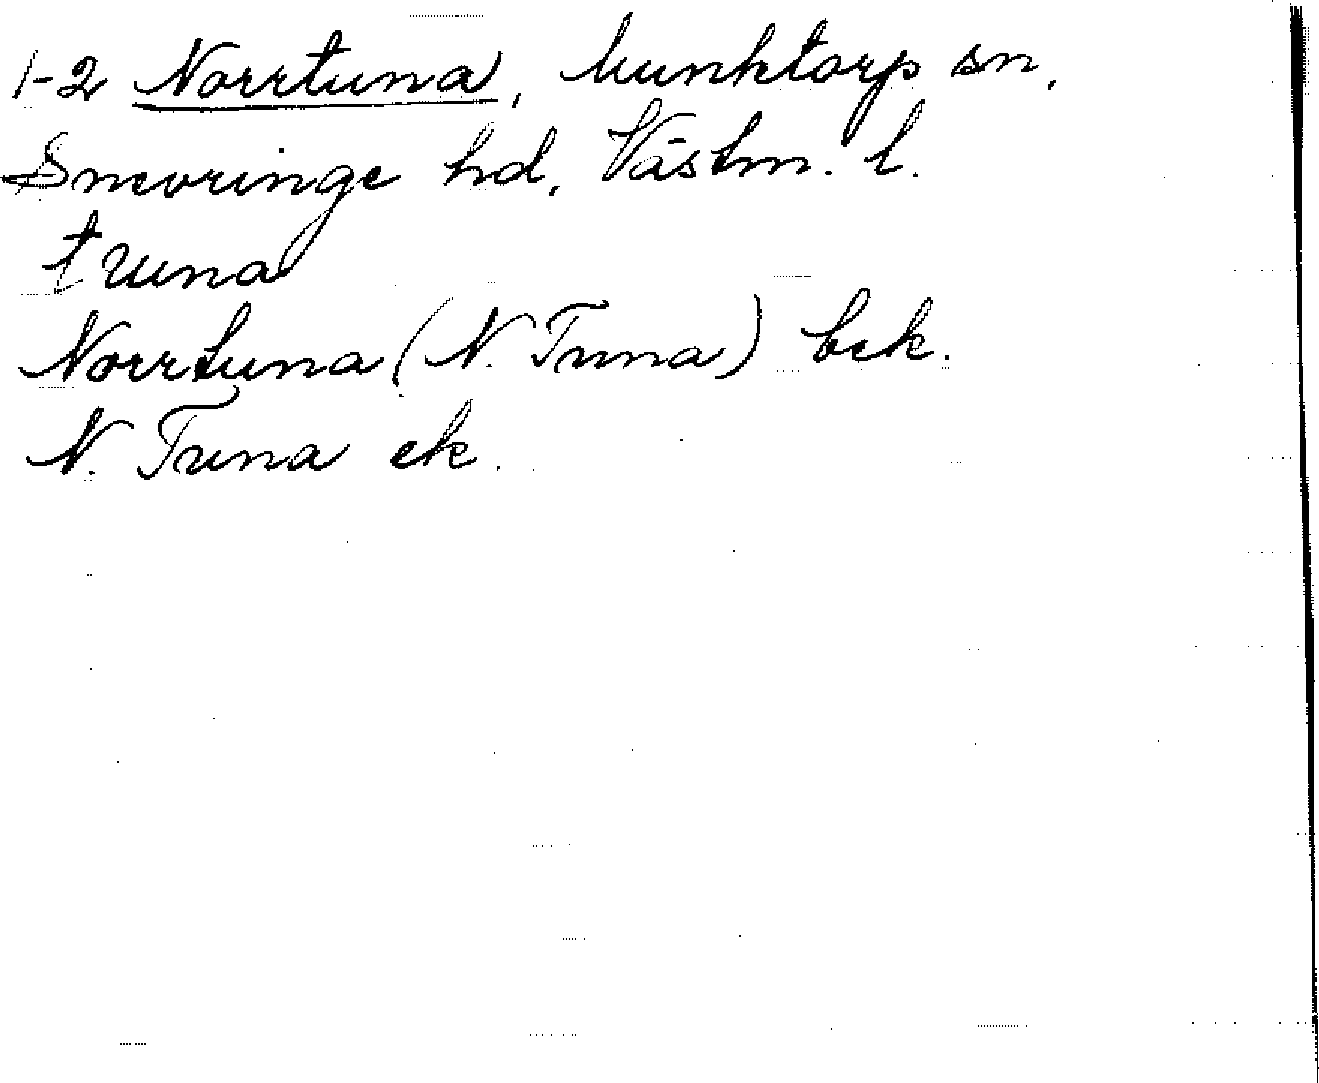 1-2 Norrtuna, Munktorp sn,
Snevringe hd, Västm. l.
tuna
Norrtuna (N. Tuna) bek.
N. Tuna ek.